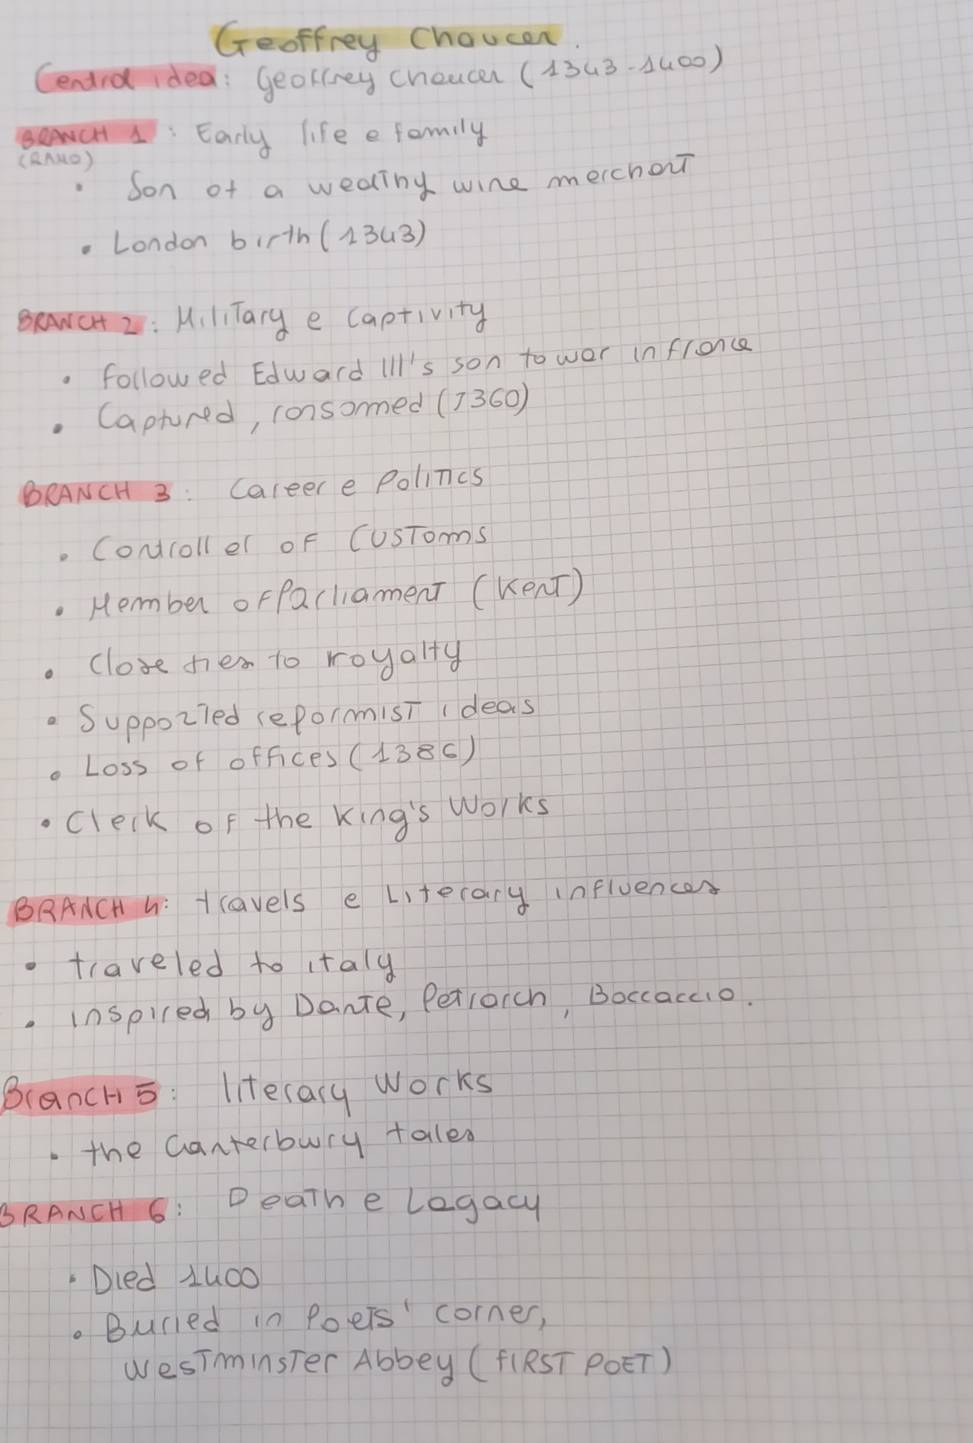 Geoffrey Chaucer.
Central idea: Geoffrey Chaucer (1343-1400)
BRANCH 1: Early life e family
(RAMO)
• Son of a wealthy wine merchant
• London birth (1343)
BRANCH 2: Military e captivity
• Followed Edward III's son to war in France
• Captured, ransomed (1360)
BRANCH 3: Career e Politics
• Controller of Customs
• Member of Parliament (Kent)
• Close ties to royalty
• Supported reformist ideas
• Loss of offices (1386)
• Clerk of the King's Works
BRANCH 4: travels e Literary influences
• traveled to italy
• inspired by Dante, Petrarch, Boccaccio.
BranCH 5: literary Works
• the Canterbury tales
BRANCH 6: Death e Legacy
• Died 1400
• Buried in Poets' corner,
Westminster Abbey (FIRST POET)